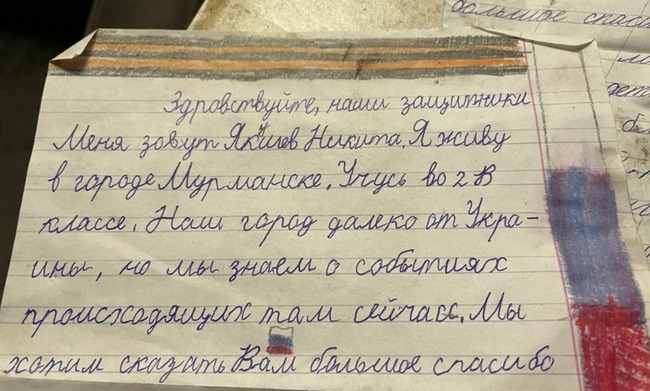 Здравствуйте, наши защитники
Меня зовут Якушев Никита. Я живу
в городе Мурманске. Учусь во 2 В
классе. Наш город далеко от Укра-
ины, но мы знаем о событиях
происходящих там сейчасс. Мы
хотим сказать Вам большое спасибо
большое спаси